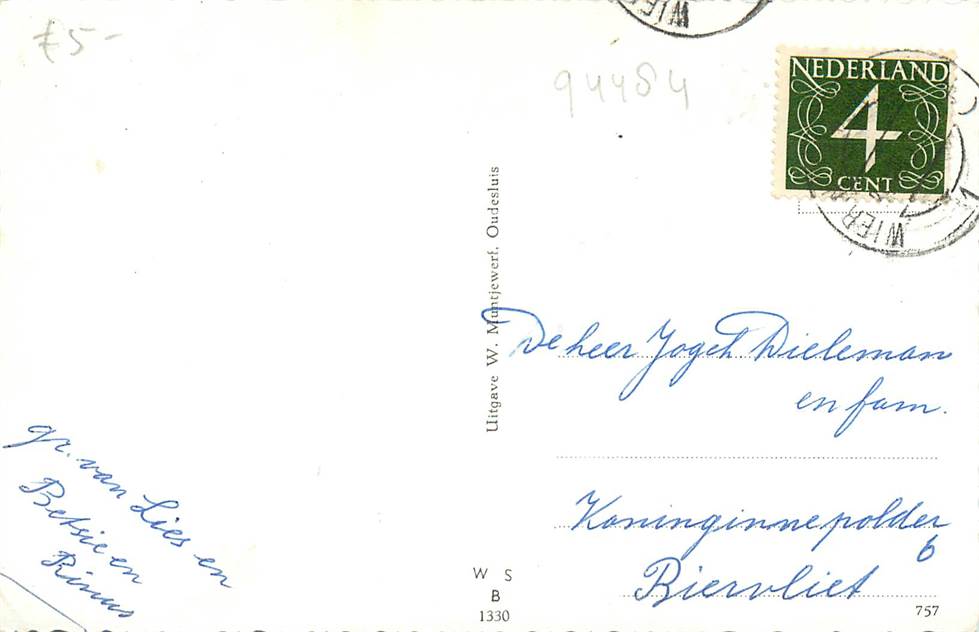 £5-
94484
WIER
NEDERLAND
4
CENT
WIER
Uitgave W. Muntjewerf. Oudesluis
De heer Jogch Dieleman
en fam.
Koninginnepolder
6
Biervliet
gr. van Lies en
Betsie en
Rinus
W S
B
1330
757